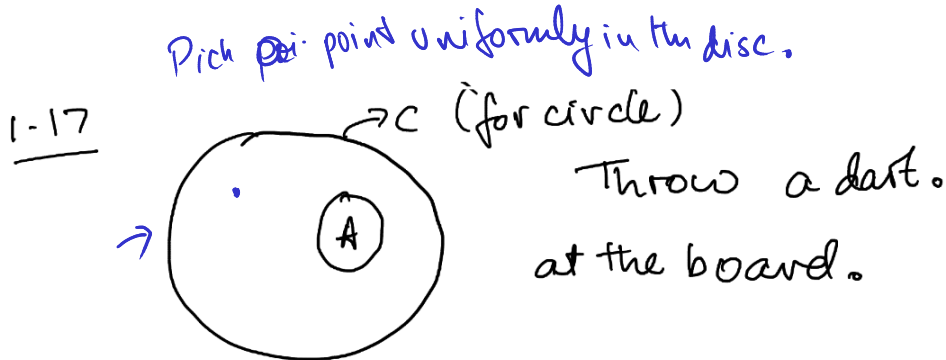 Pick point uniformly in the disc.
1-17
C (for circle)
Throw a dart.
A
at the board.